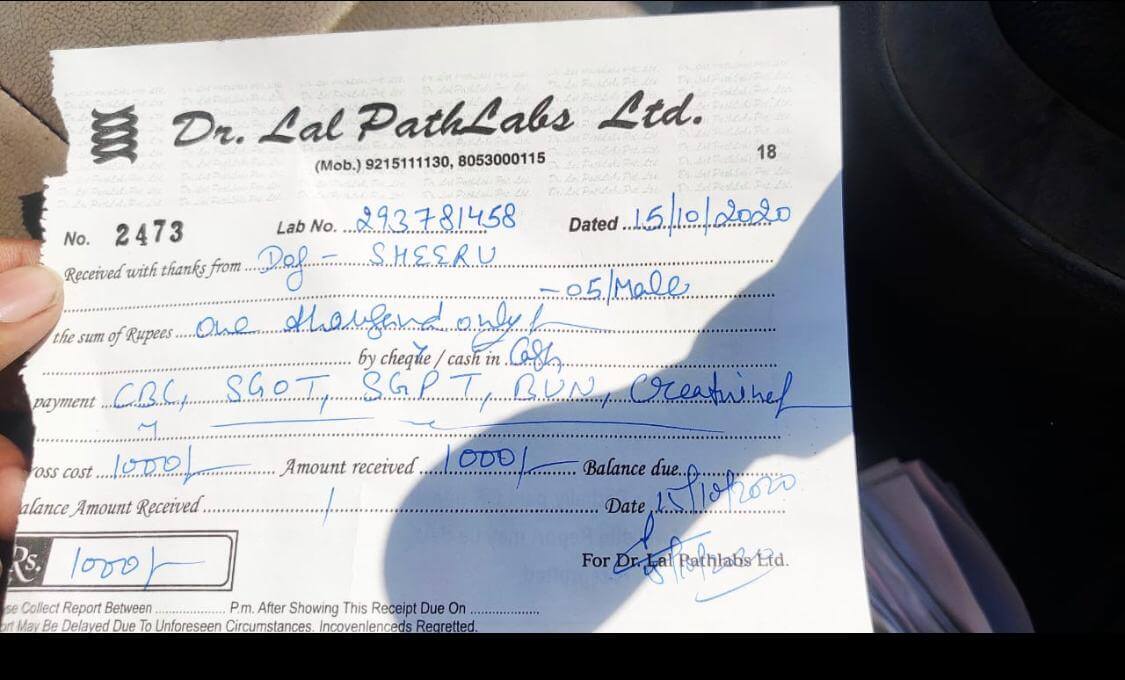 Dr. Lal PathLabs Ltd.
(Mob.) 9215111130, 8053000115
18
No. 2473 Lab No. 293781458 Dated 15/10/2020
Received with thanks from Dog - SHEERU
-05/Male
the sum of Rupees one thousand only/-
by cheque / cash in Cash
payment CBC, SGOT, SGPT, BUN, Creatinine
oss cost 1000/- Amount received 1000/- Balance due
alance Amount Received / Date 15/10/2020
Rs. 1000/-
For Dr. Lal Pathlabs Ltd.
se Collect Report Between P.m. After Showing This Receipt Due On
ort May Be Delayed Due To Unforeseen Circumstances. Incovenlenceds Regretted.